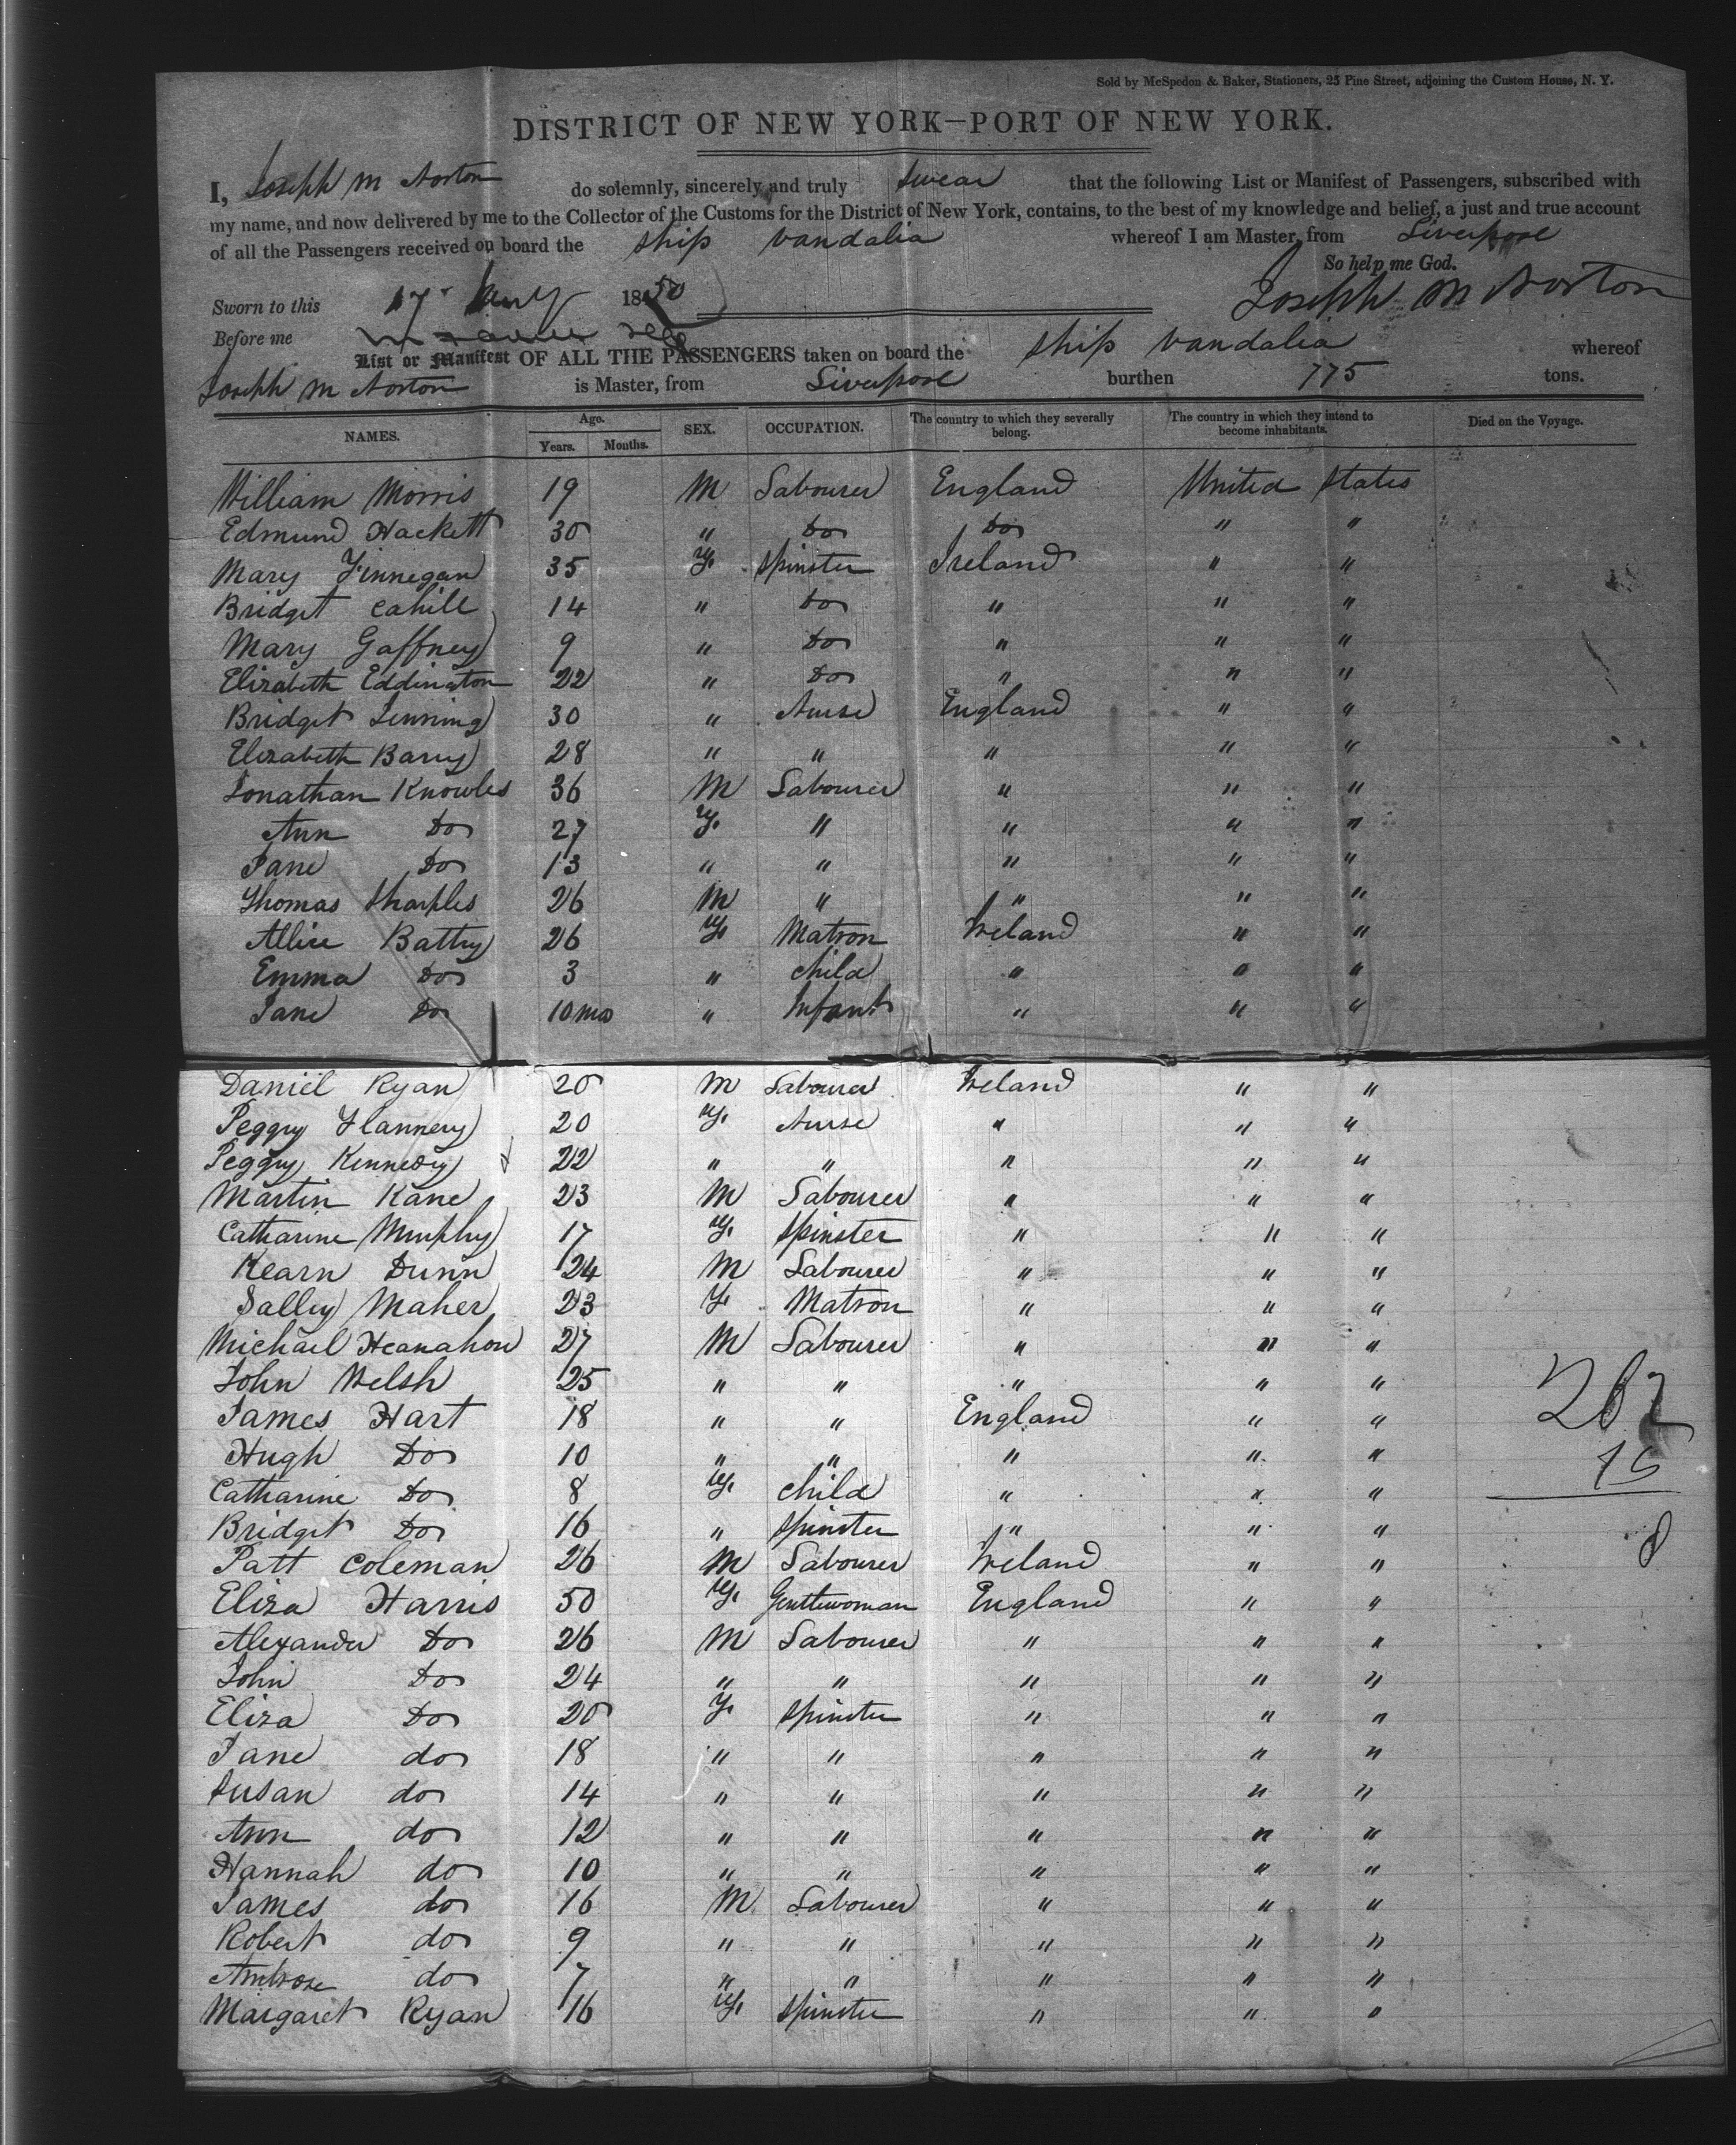 Sold by McSpedon & Baker, Stationers, 25 Pine Street, adjoining the Custom House, N. Y.
DISTRICT OF NEW YORK—PORT OF NEW YORK.
I, Joseph M Norton do solemnly, sincerely and truly swear that the following List or Manifest of Passengers, subscribed with
my name, and now delivered by me to the Collector of the Customs for the District of New York, contains, to the best of my knowledge and belief, a just and true account
of all the Passengers received on board the ship vandalia whereof I am Master, from Liverpool
So help me God.
Sworn to this 17 1850 Joseph M Norton
Before me
List or Manifest OF ALL THE PASSENGERS taken on board the ship vandalia whereof
Joseph M Norton is Master, from Liverpool burthen 775 tons.
NAMES. Age. Years. Months. SEX. OCCUPATION. The country to which they severally belong. The country in which they intend to become inhabitants. Died on the Voyage.
William Morris 19 M Labourer England United States
Edmund Hackett 30 " Do Do " "
Mary Finnegan 35 F. Spinster Ireland " "
Bridget Cahill 14 " Do " " "
Mary Gaffney 9 " Do " " "
Elizabeth Eddington 22 " Do " " "
Bridget Lenning 30 " Nurse England " "
Elizabeth Barry 28 " " " " "
Jonathan Knowles 36 M Labourer " " "
Ann Do 27 F. " " " "
Jane Do 13 " " " " "
Thomas Sharples 26 M " " " "
Allice Battey 26 F. Matron Ireland " "
Emma Do 3 " child " " "
Jane Do 10 mo " Infant " " "
Daniel Ryan 20 M Labourer Ireland " "
Peggy Flannery 20 F. Nurse " " "
Peggy Kennedy 22 " " " " "
Martin Kane 23 M Labourer " " "
Catharine Murphy 17 F. Spinster " " "
Kearn Dunn 24 M Labourer " " "
Salley Maher 23 F. Matron " " "
Michael Heanahon 27 M Labourer " " "
John Welsh 25 " " " " "
James Hart 18 " " England " "
Hugh Do 10 " " " " "
Catharine Do 8 F. child " " "
Bridget Do 16 " Spinster " " "
Patt Coleman 26 M Labourer Ireland " "
Eliza Harris 50 F. Gentlewoman England " "
Alexander Do 26 M Labourer " " "
John Do 24 " " " " "
Eliza Do 20 F. Spinster " " "
Jane do 18 " " " " "
Susan do 14 " " " " "
Ann do 12 " " " " "
Hannah do 10 " " " " "
James do 16 M Labourer " " "
Robert do 9 " " " " "
Ambrose do 7 " " " " "
Margaret Ryan 16 F. Spinster " " "